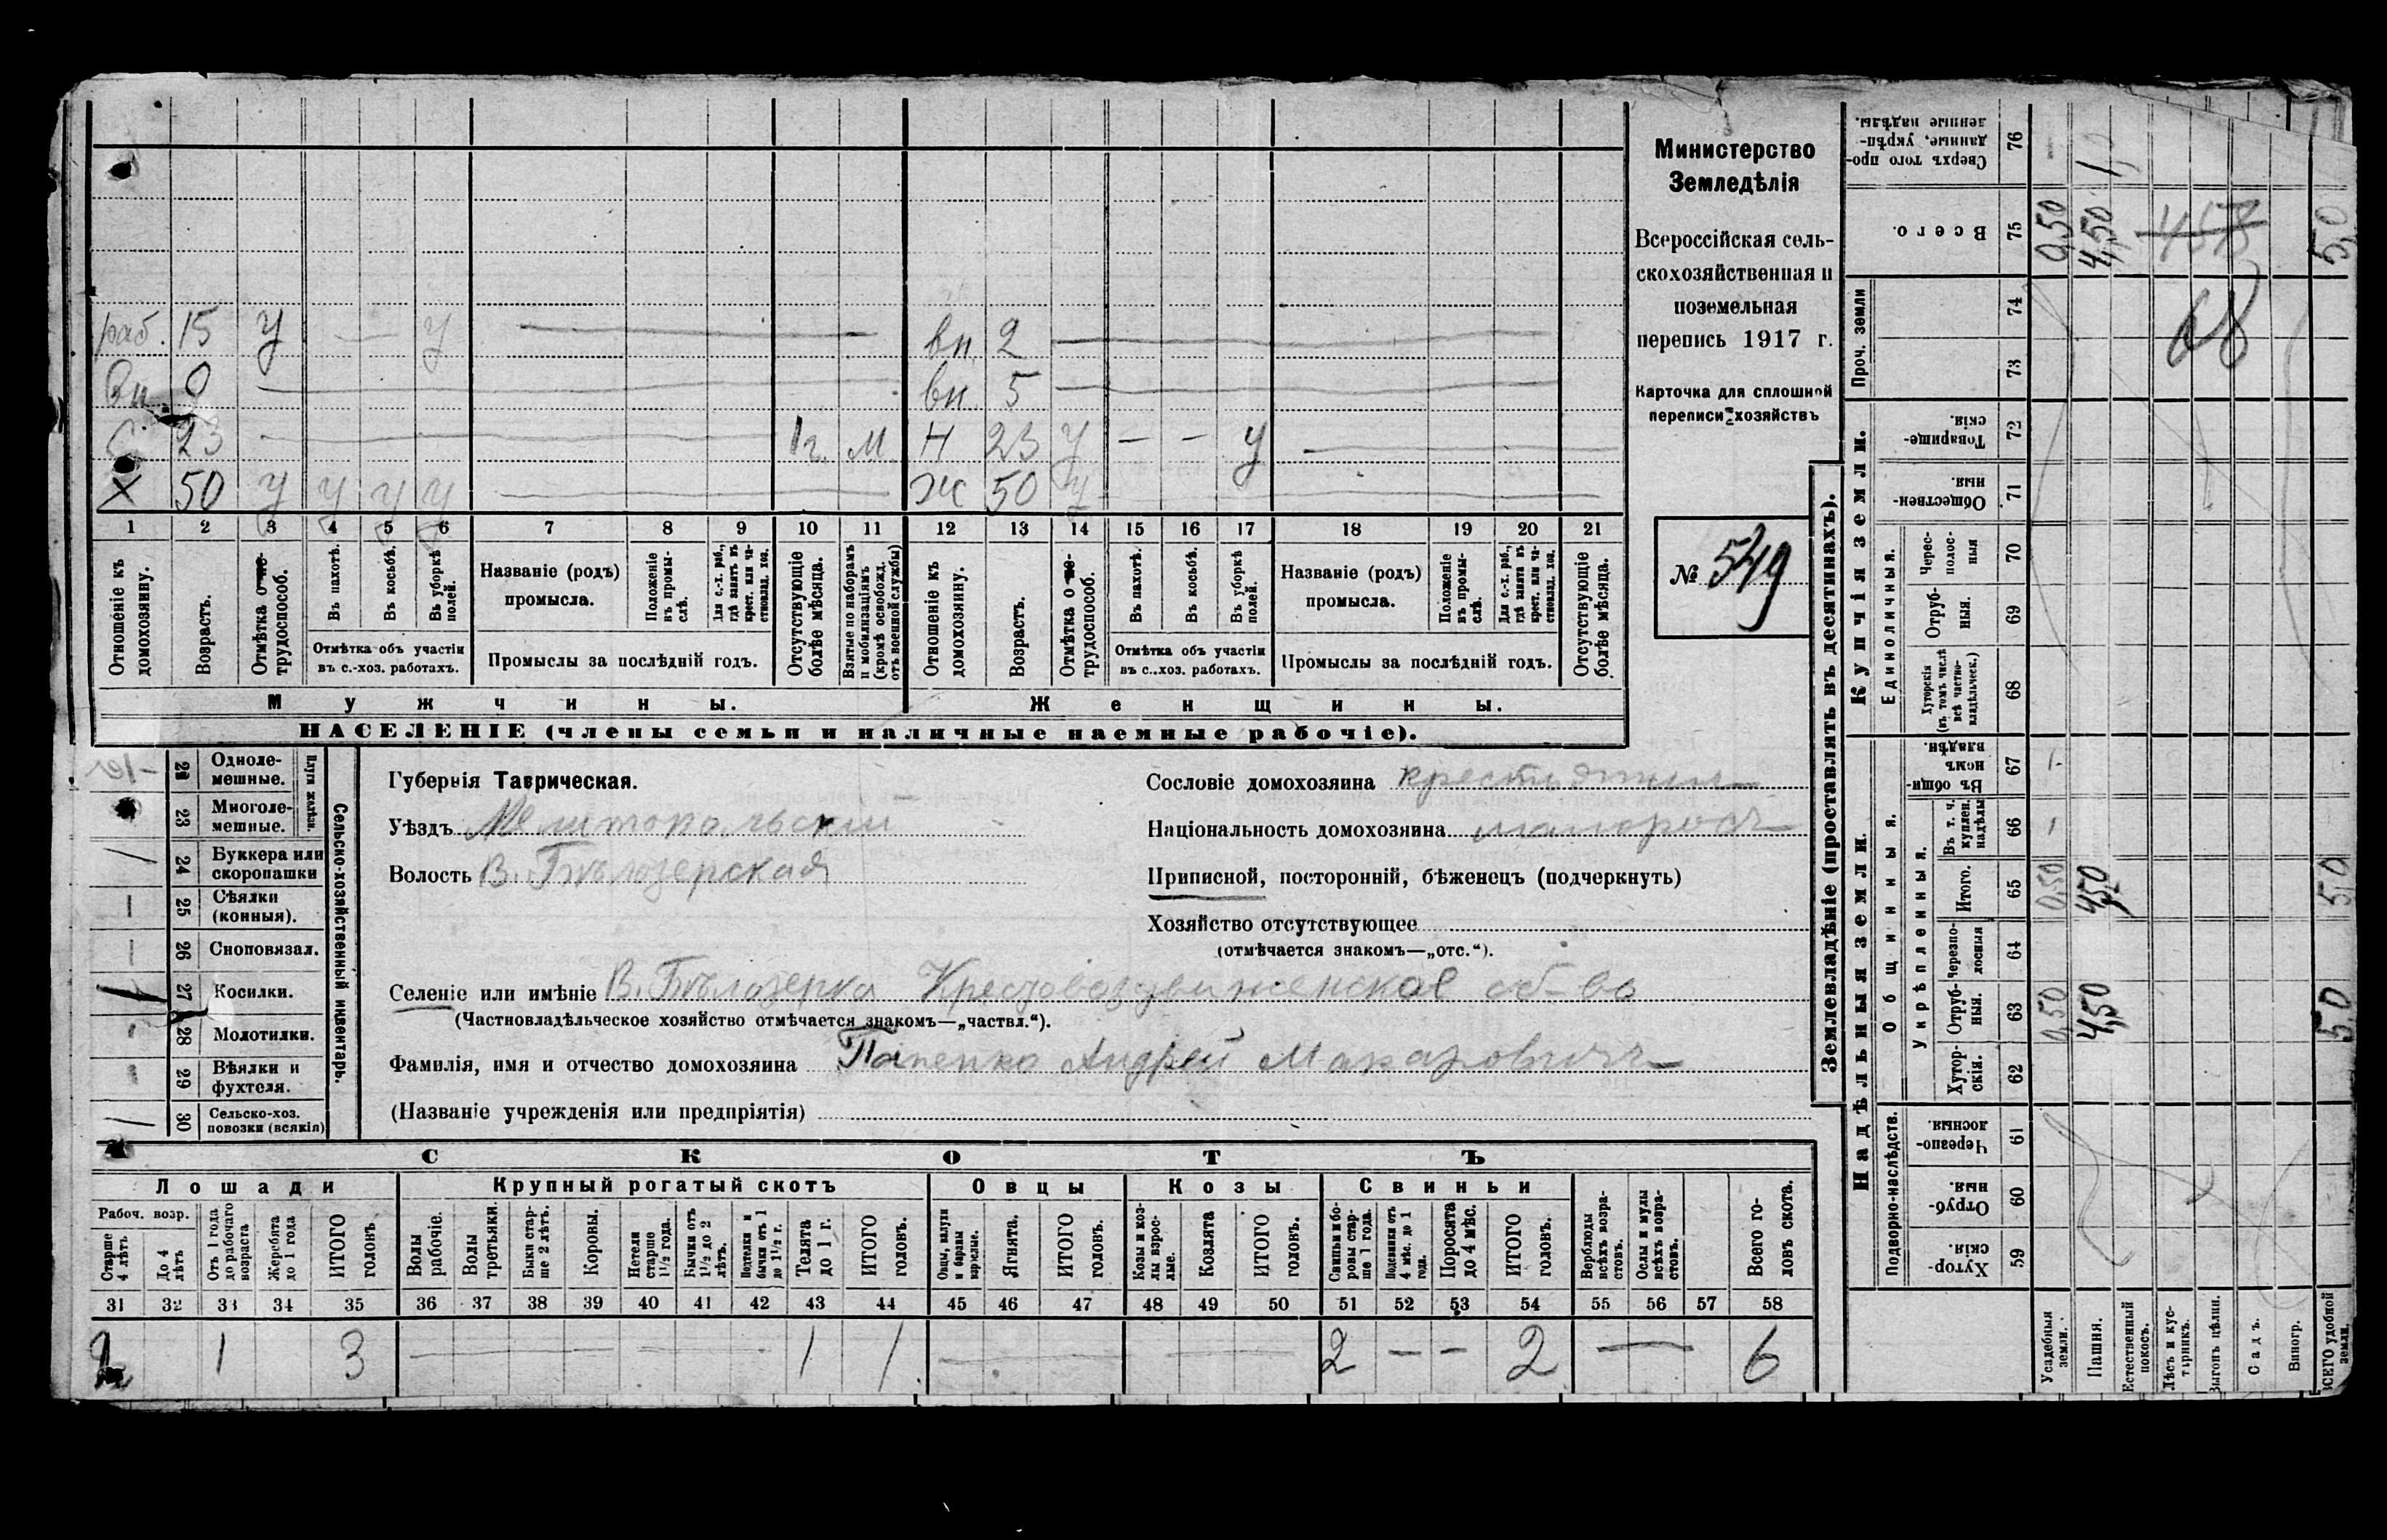 Министерство
Земледѣлія
Всероссійская сель-
скохозяйственная и
поземельная
перепись 1917 г.
Карточка для сплошной
переписи хозяйствъ
№ 549
раб. 15 У — У — вн. 2 —
Вн 9 — вн. 5 —
С 23 — 1г. М Н 23 У — — У —
Х 50 У У У У — Ж 50 У —
1 2 3 4 5 6 7 8 9 10 11 12 13 14 15 16 17 18 19 20 21
Отношеніе къ домохозяину.
Возрастъ.
Отмѣтка о не-трудоспособ.
Въ пахотѣ.
Въ косьбѣ.
Въ уборкѣ полей.
Отмѣтка объ участіи въ с.-хоз. работахъ.
Названіе (родъ) промысла.
Положеніе въ промы-слѣ.
Для с.-х. раб., гдѣ занятъ въ крест. или ча-стновлад. хоз.
Промыслы за послѣдній годъ.
Отсутствующіе болѣе мѣсяца.
Взятые по наборамъ и мобилизаціямъ (кромѣ освобожд. отъ военной службы)
Отношеніе къ домохозяину.
Возрастъ.
Отмѣтка о не-трудоспособ.
Въ пахотѣ.
Въ косьбѣ.
Въ уборкѣ полей.
Отмѣтка объ участіи въ с..хоз. работахъ.
Названіе (родъ) промысла.
Положеніе въ промы-слѣ.
Для с.-х. раб., гдѣ занята въ крест. или ча-стновлад. хоз.
Промыслы за послѣдній годъ.
Отсутствующіе болѣе мѣсяца.
Мужчины. Женщины.
НАСЕЛЕНІЕ (члены семьи и наличные наемные рабочіе).
Сельско-хозяйственный инвентарь.
Плуги желѣзн.
22 Одноле-мешные.
23 Многоле-мешные.
24 Буккера или скоропашки
25 Сѣялки (конныя).
26 Сноповязал.
27 Косилки.
28 Молотилки.
29 Вѣялки и фухтеля.
30 Сельско-хоз. повозки (всякія)
Губернія Таврическая.
Уѣздъ Мелитопольскій
Волость В. Бѣлозерская
Сословіе домохозяина крестьянин
Національность домохозяина малоросъ
Приписной, посторонній, бѣженецъ (подчеркнуть)
Хозяйство отсутствующее
(отмѣчается знакомъ—„отс.“).
Селеніе или имѣніе В. Бѣлозерка Крестовоздвиженское об-во
(Частновладѣльческое хозяйство отмѣчается знакомъ—„частвл.“).
Фамилія, имя и отчество домохозяина Папенко Андрей Макаровичъ
(Названіе учрежденія или предпріятія)
СКОТЪ
Лошади Крупный рогатый скотъ Овцы Козы Свиньи
Рабоч. возр.
Старше 4 лѣтъ
До 4 лѣтъ
Отъ 1 года до рабочаго возраста
Жеребята до 1 года
ИТОГО головъ
Волы рабочіе.
Волы третьяки.
Быки стар-ше 2 лѣтъ.
Коровы.
Нетели старше 1½ года.
Бычки отъ 1½ до 2 лѣтъ.
Подтелки и бычки отъ 1 до 1½ г.
Телята до 1 г.
ИТОГО головъ.
Овцы, валухи и бараны взрослые.
Ягнята.
ИТОГО головъ.
Козы и коз-лы взрос-лые.
Козлята
ИТОГО головъ.
Свиньи и бо-ровы стар-ше 1 года.
Подсвинки отъ 4 мѣс. до 1 года.
Поросята до 4 мѣс.
ИТОГО головъ.
Верблюды всѣхъ возра-стовъ.
Ослы и мулы всѣхъ возра-стовъ.
Всего го-ловъ скота.
31 32 33 34 35 36 37 38 39 40 41 42 43 44 45 46 47 48 49 50 51 52 53 54 55 56 57 58
2 1 3 — 1 1 — — 2 — — 2 — 6
Землевладѣніе (проставлять въ десятинахъ).
Надѣльныя земли. Купчія земли. Проч. земли
Подворно-наслѣдств. Общинныя. Единоличныя.
Укрѣпленныя.
Хутор-скія. 59
Отруб-ныя. 60
Черезпо-лосныя 61
Хутор-скія. 62
Отруб-ныя. 63
Черезпо-лосныя 64
Итого. 65
Въ т. ч. куплен. надѣлы 66
Въ общин-номъ владѣн. 67
Хуторскія (въ томъ числѣ всѣ частно-владѣльческ.) 68
Отруб-ныя. 69
Черес-полос-ныя 70
Обществен-ныя. 71
Товарище-скія. 72
73
74
Всего. 75
Сверхъ того про-данные, укрѣп-ленные надѣлы. 76
Усадебныя земли. 0,50 0,50 0,50
Пашня. 4,50 4,50 4,50
Естественный покосъ.
Лѣсъ и кус-тарникъ.
Выгонъ цѣлин.
Садъ.
Виногр.
ВСЕГО удобной земли. 5,0 5,0 5,0
68